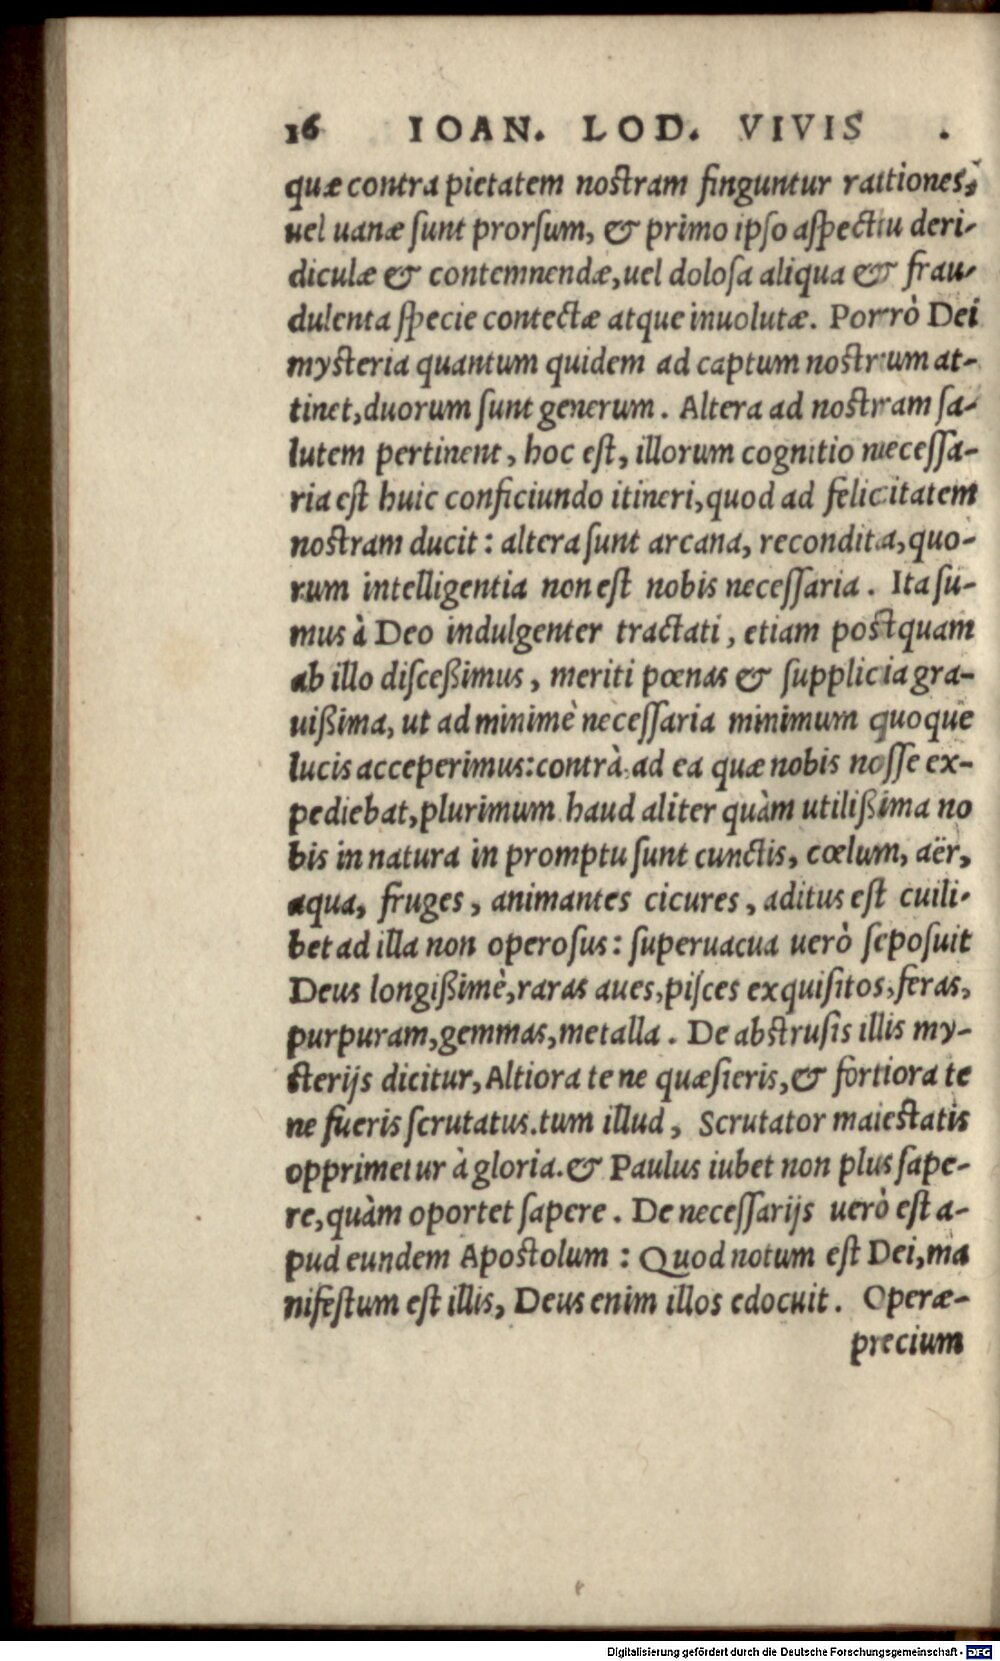 16 IOAN. LOD. VIVIS
quæ contra pietatem nostram finguntur rationes,
uel uanæ sunt prorsum, & primo ipso aspectu deri-
diculæ & contemnendæ, uel dolosa aliqua & frau-
dulenta specie contectæ atque inuolutæ. Porrò Dei
mysteria quantum quidem ad captum nostrum at-
tinet, duorum sunt generum. Altera ad nostram sa-
lutem pertinent, hoc est, illorum cognitio necessa-
ria est huic conficiundo itineri, quod ad felicitatem
nostram ducit: altera sunt arcana, recondita, quo-
rum intelligentia non est nobis necessaria. Ita su-
mus à Deo indulgenter tractati, etiam postquam
ab illo disceßimus, meriti pœnas & supplicia gra-
uißima, ut ad minimè necessaria minimum quoque
lucis acceperimus: contrà ad ea quæ nobis nosse ex-
pediebat, plurimum haud aliter quàm utilißima no
bis in natura in promptu sunt cunctis, cœlum, aër,
aqua, fruges, animantes cicures, aditus est cuili-
bet ad illa non operosus: superuacua uerò seposuit
Deus longißimè, raras aues, pisces exquisitos, feras,
purpuram, gemmas, metalla. De abstrusis illis my-
sterijs dicitur, Altiora te ne quæsieris, & fortiora te
ne fueris scrutatus. tum illud, Scrutator maiestatis
opprimetur à gloria. & Paulus iubet non plus sape-
re, quàm oportet sapere. De necessarijs uerò est a-
pud eundem Apostolum: Quod notum est Dei, ma
nifestum est illis, Deus enim illos edocuit. Operæ-
precium
Digitalisierung gefördert durch die Deutsche Forschungsgemeinschaft - DFG